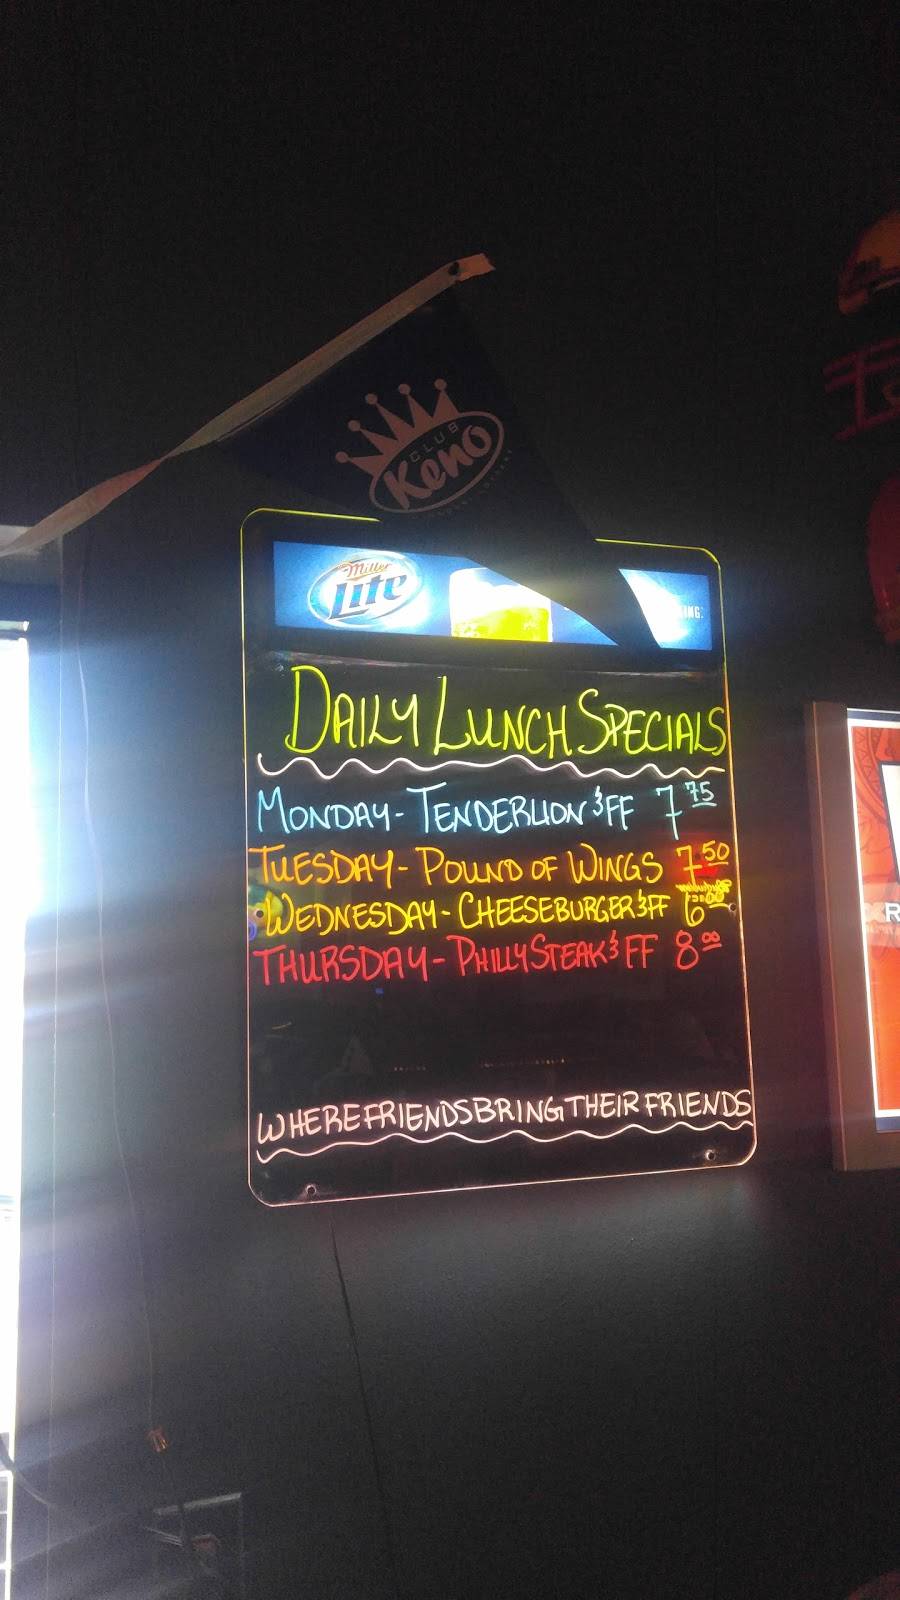 CLUB
Keno
Miller
Lite
ING.
DAILY LUNCH SPECIALS
MONDAY - TENDERLION & FF 7.75
TUESDAY - POUND OF WINGS 7.50
WEDNESDAY - CHEESEBURGER & FF 6.00
THURSDAY - PHILLY STEAK & FF 8.00
WHERE FRIENDS BRING THEIR FRIENDS